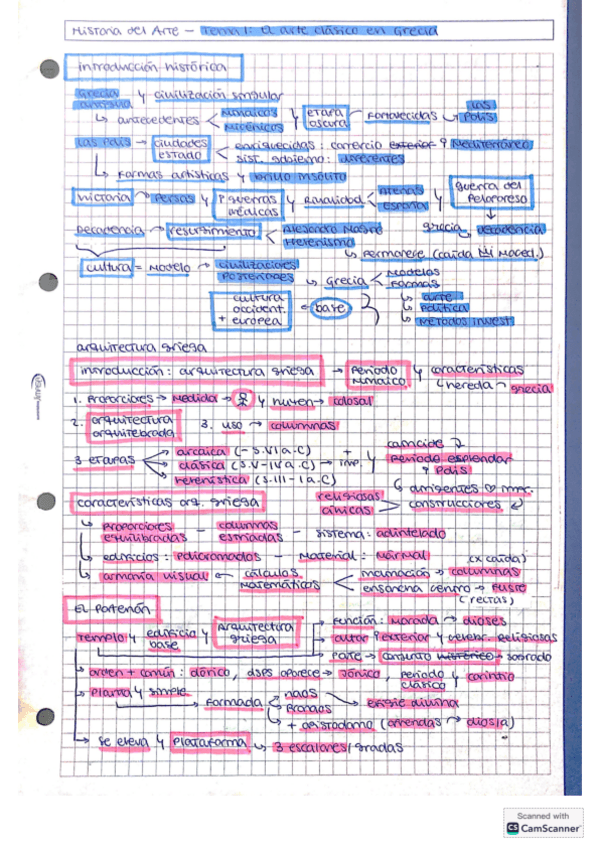 Historia del Arte - Tema 1: El arte clásico en Grecia
introducción histórica
Grecia antigua y civilización singular
antecedentes < minoicos micénicos y etapa oscura - Fortalecidas → las Polis
Las Polis → ciudades estado < enriquecidas: comercio exterior Mediterráneo
sist. gobierno: diferentes
Formas artísticas y brillo insólito
Victoria → Persas y guerras médicas y Rivalidad < Atenas y guerra del Peloponeso
Decadencia → resurgimiento < Alejandro Helenismo Grecia decadencia
permanece (caída
cultura = modelo → civilizaciones posteriores → Grecia < modelos Formas
cultura occident. + europea = base
→ arte
→ Política
→ métodos invest.
arquitectura griega
introducción: arquitectura griega → Periodo minoico y características
(hereda → Grecia
1. Proporciones → medida → y huyen → colosal
2. arquitectura arquitrabada 3. uso → columnas
3 etapas
arcaica (- S.VI a.C)
clásica (S.V-IV a.C) → + imp. y coincide periodo esplendor Polis
helenística (S.III-I a.C)
religiosas cívicas > construcciones
características arq. griega
Proporciones equilibradas - columnas estriadas - sistema: adintelado
edificios: Policromados - material: mármol (cx caída)
armonía visual ← cálculos matemáticos < inclinación → columnas
ensancha centro → Fuste (rectas)
El Partenón
Templo y edificio base y Arquitectura griega
Función: morada → dioses
exterior y celebr. Religiosas
Parte → conjunto → sagrado
orden + común: dórico, dsps aparece → Jónico, Periodo clásico y corintio
Planta y simple
Formada < naos Pronaos → efigie divina
+ opistodomo (ofrendas → dios/a)
se eleva y plataforma → 3 escalones/gradas
Scanned with
CS CamScanner